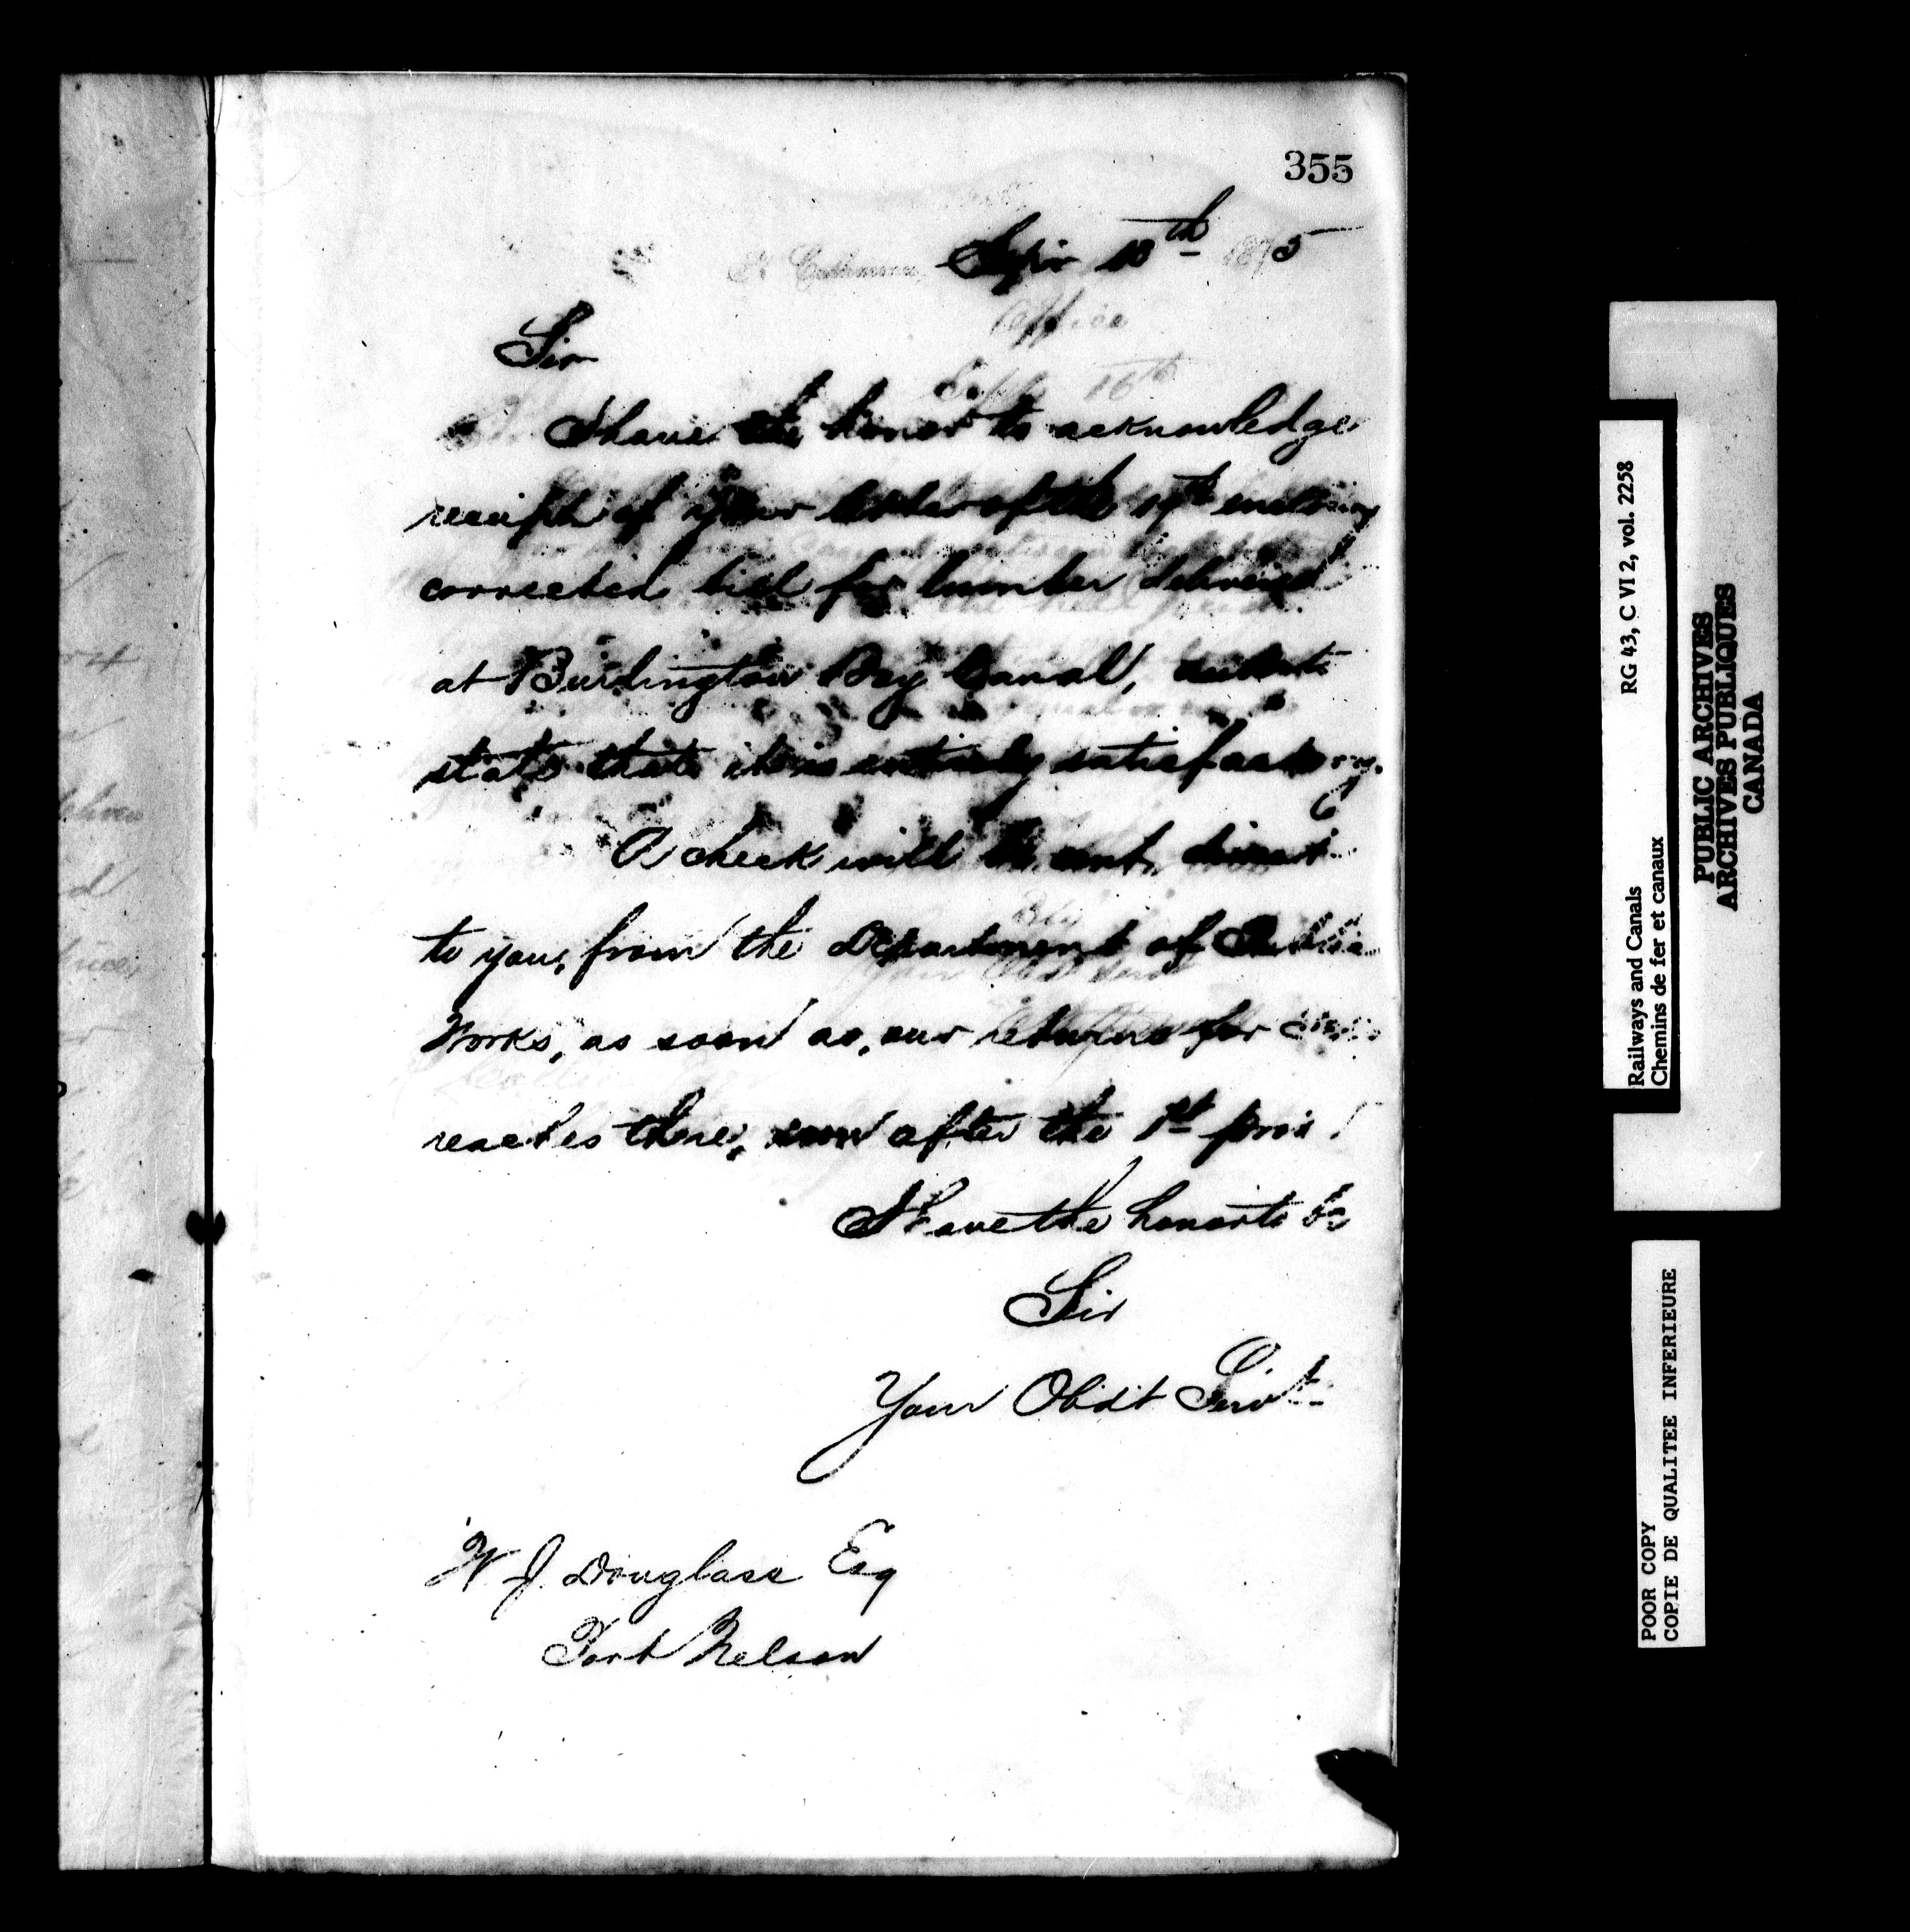 355
Sept 18th 1875
Sir
I have the honor to acknowledge
receipt of your letter of the 17th enclosing
corrected bill for lumber delivered
at Burlington Bay Canal,
state that it is entirely satisfactory.
A check will be sent direct
to you, from the Department of Public
Works, as soon as, our returns for
reaches there, soon after the 1st prox
I have the honor to be
Sir
Your Obdt Servt
W. J. Douglass Esq
Port Nelson
Railways and Canals RG 43, C VI 2, vol. 2258
Chemins de fer et canaux
PUBLIC ARCHIVES
ARCHIVES PUBLIQUES
CANADA
POOR COPY
COPIE DE QUALITEE INFERIEURE